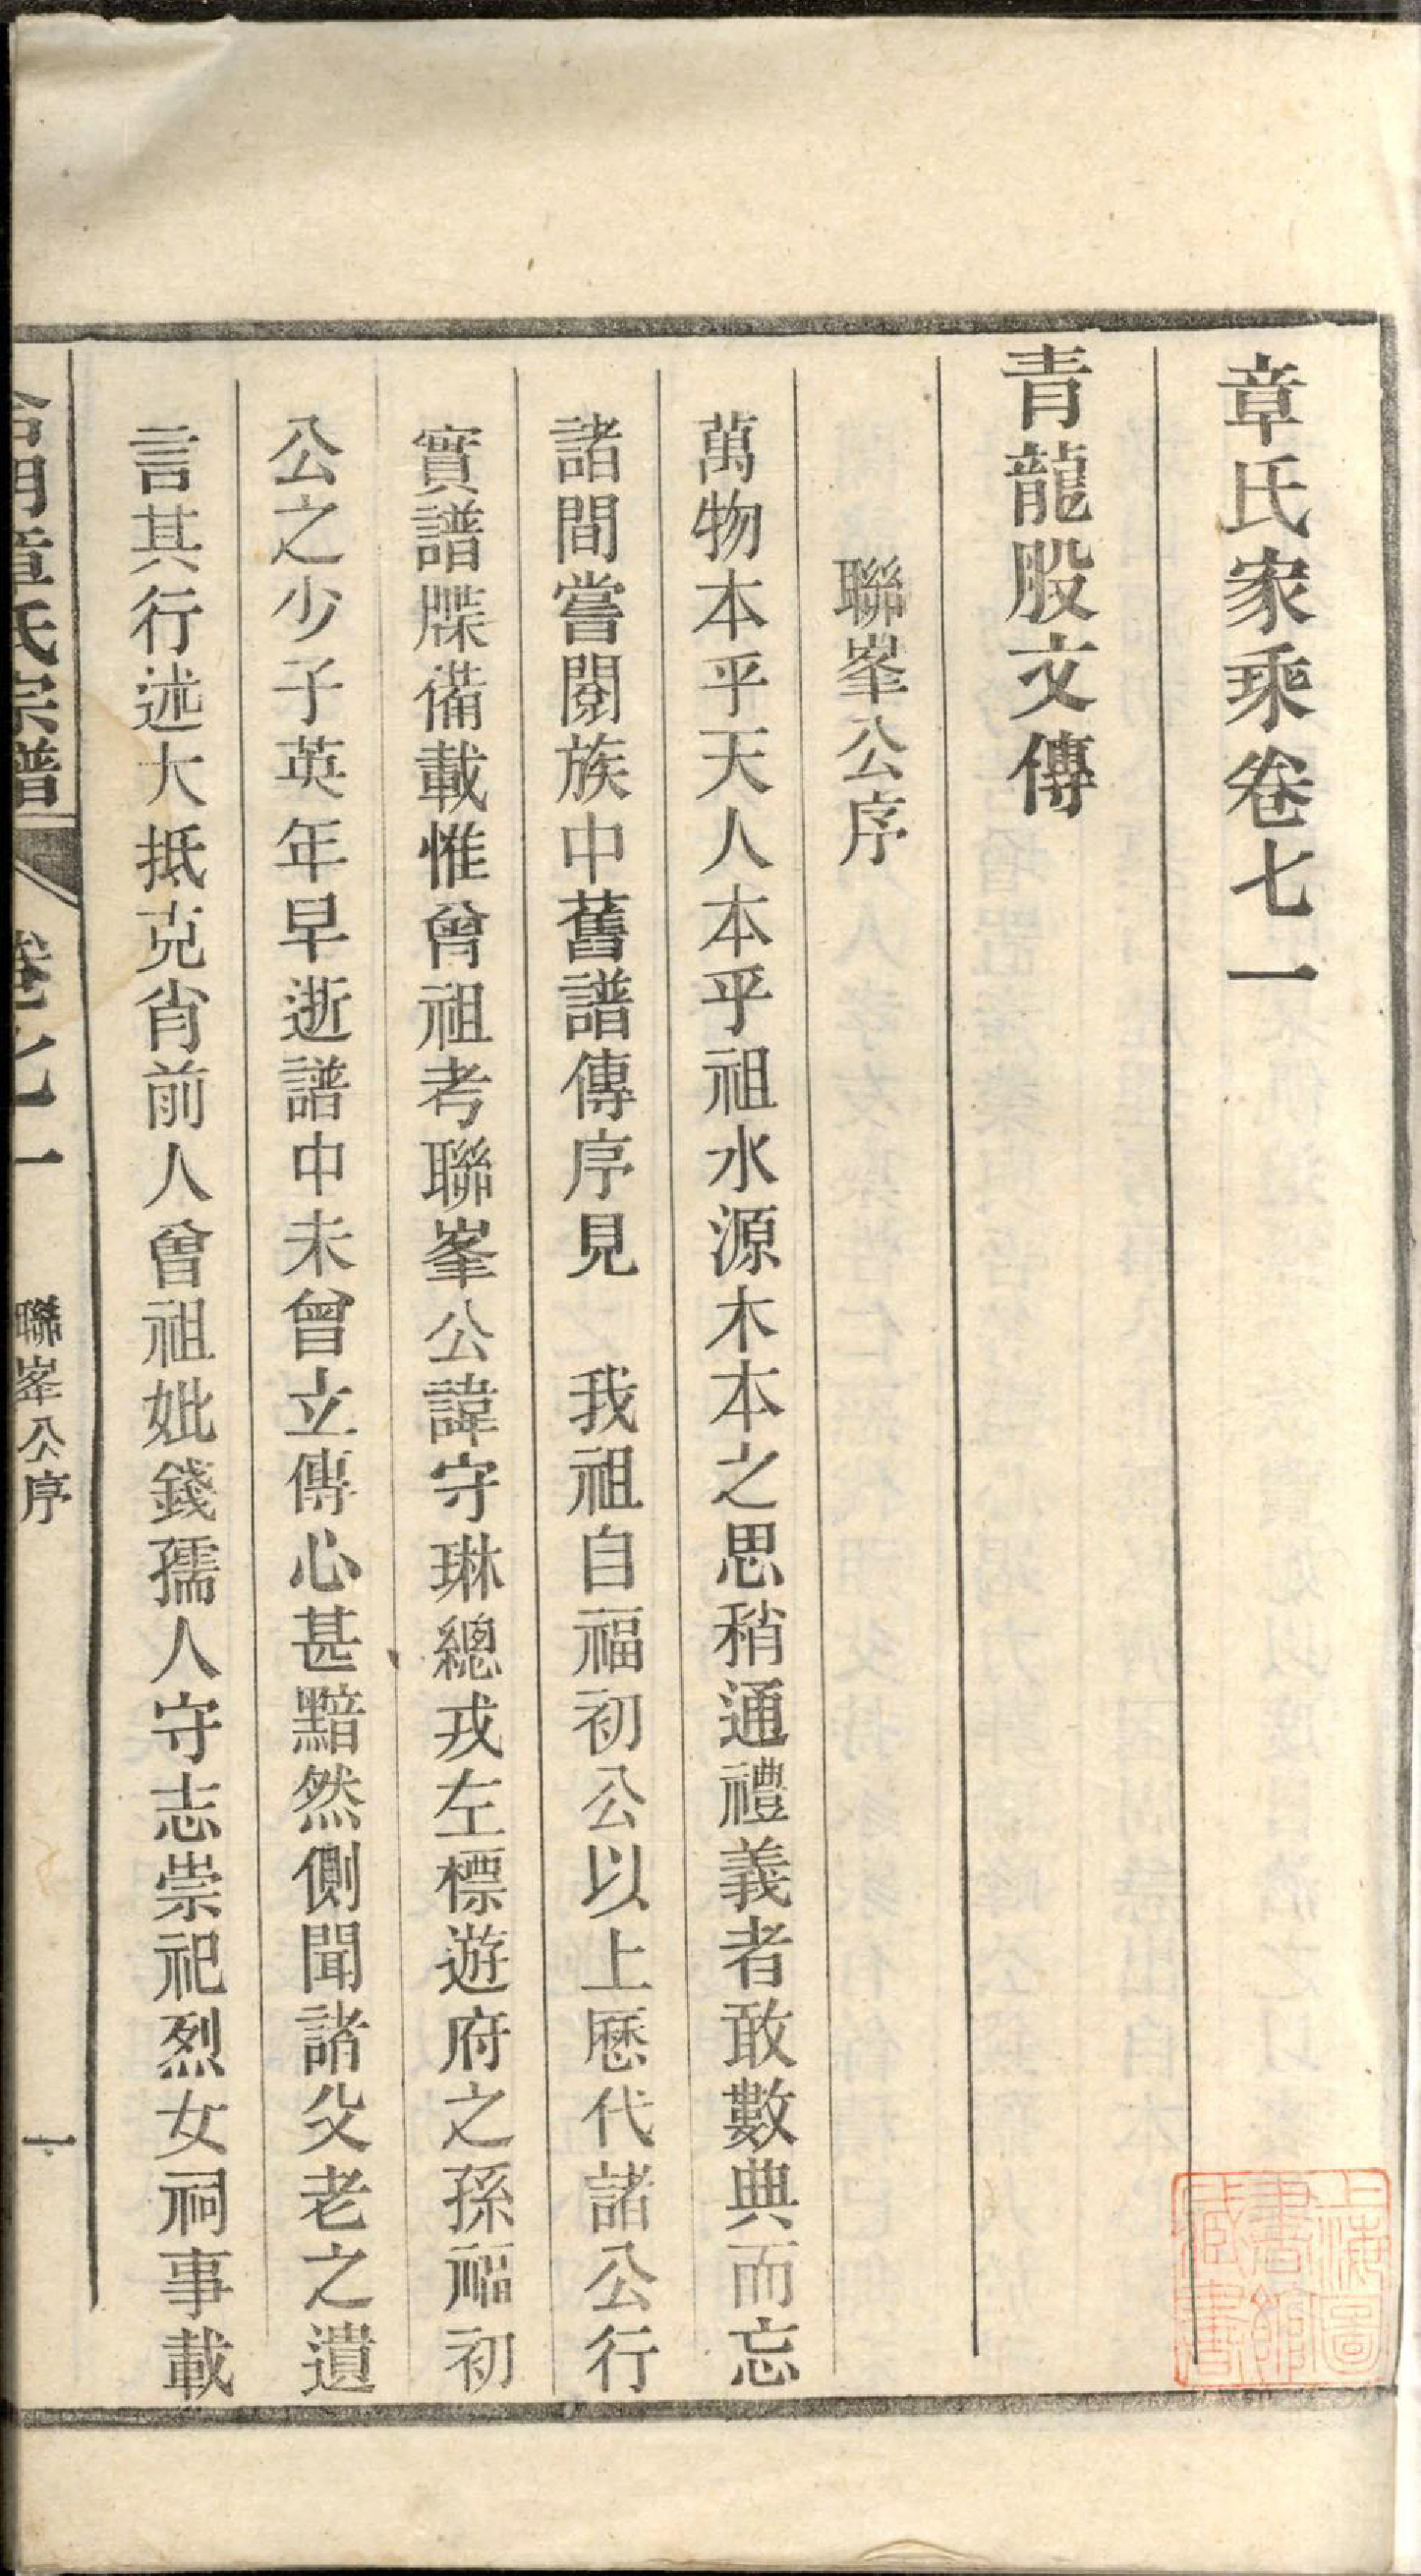 章氏家乘卷七一
青龍股文傳
聯峯公序
萬物本乎天人本乎祖水源木本之思稍通禮義者敢數典而忘
諸間嘗閱族中舊譜傳序見　我祖自福初公以上歷代諸公行
實譜牒備載惟曾祖考聯峯公諱守琳總戎左標遊府之孫福初
公之少子英年早逝譜中未曾立傳心甚黯然側聞諸父老之遺
言其行述大抵克肖前人曾祖妣錢孺人守志崇祀烈女祠事載
章氏宗譜　卷七一　聯峯公序　一
上海圖書館藏書